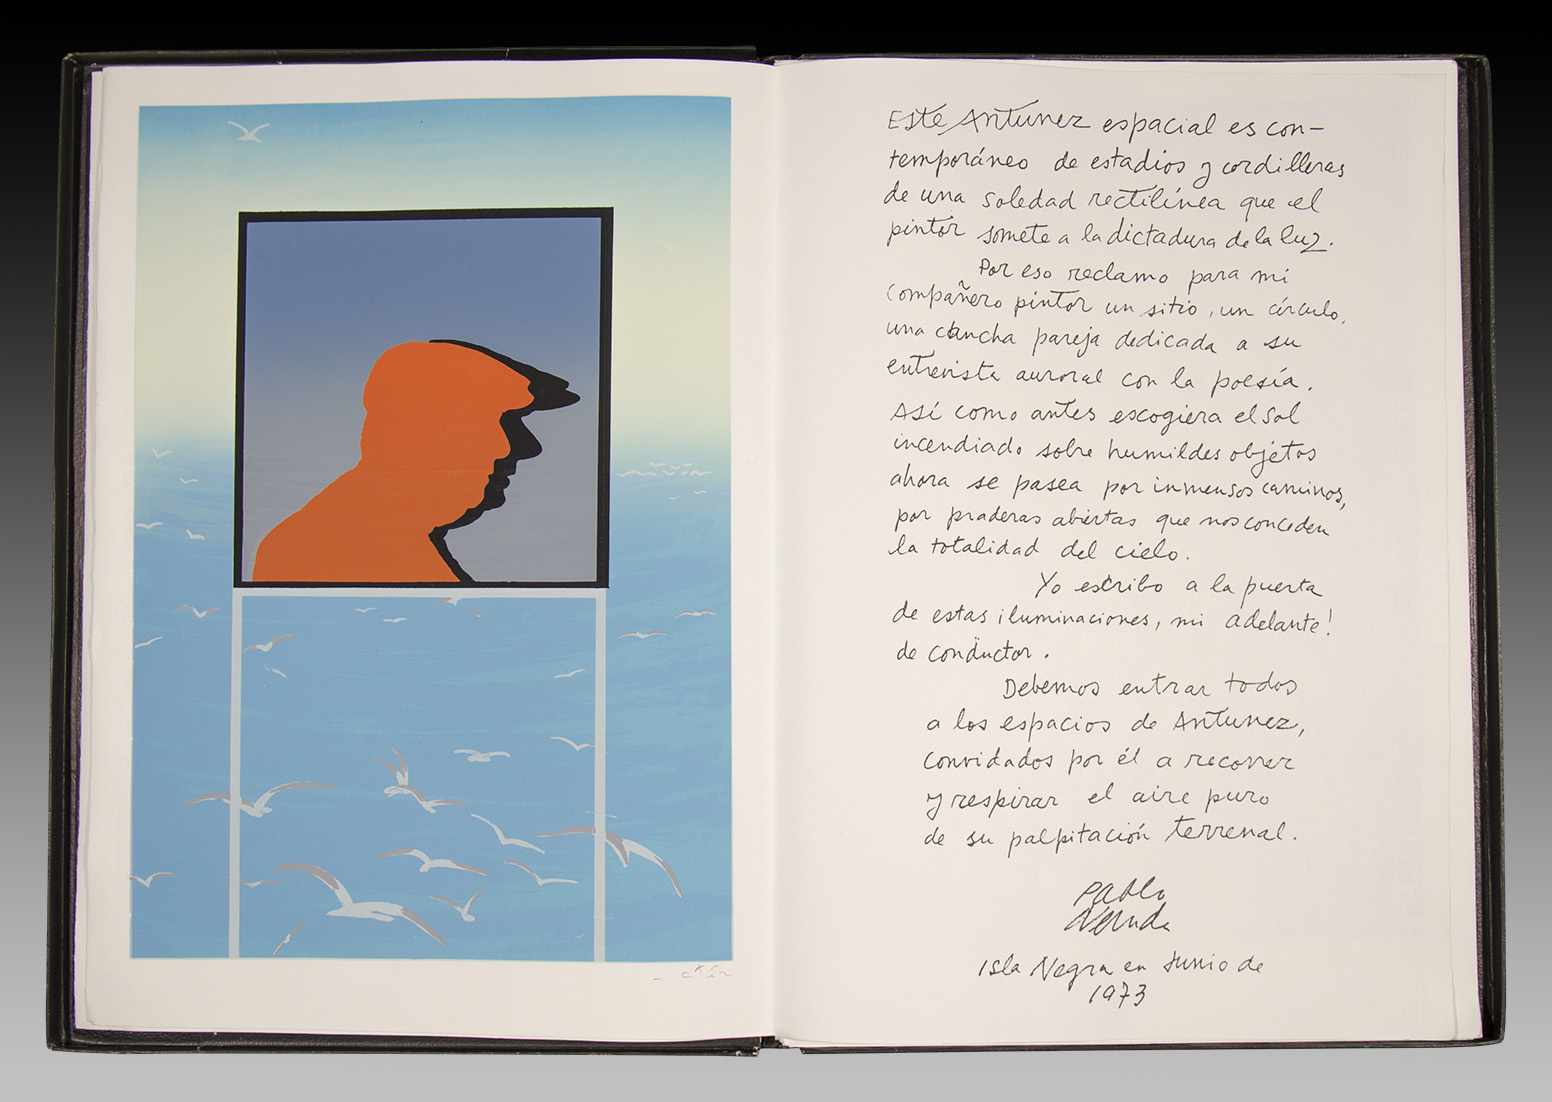 Este Antunez espacial es con-
temporáneo de estadios y cordilleras
de una soledad rectilínea que el
pintor somete a la dictadura de la luz.
Por eso reclamo para mi
compañero pintor un sitio, un círculo,
una cancha pareja dedicada a su
entrevista auroral con la poesía.
Así como antes escogiera el sol
incendiado sobre humildes objetos
ahora se pasea por inmensos caminos,
por praderas abiertas que nos conceden
la totalidad del cielo.
Yo escribo a la puerta
de estas iluminaciones, mi adelante!
de conductor.
Debemos entrar todos
a los espacios de Antunez,
convidados por él a recorrer
y respirar el aire puro
de su palpitación terrenal.
Pablo
Neruda
Isla Negra en Junio de
1973